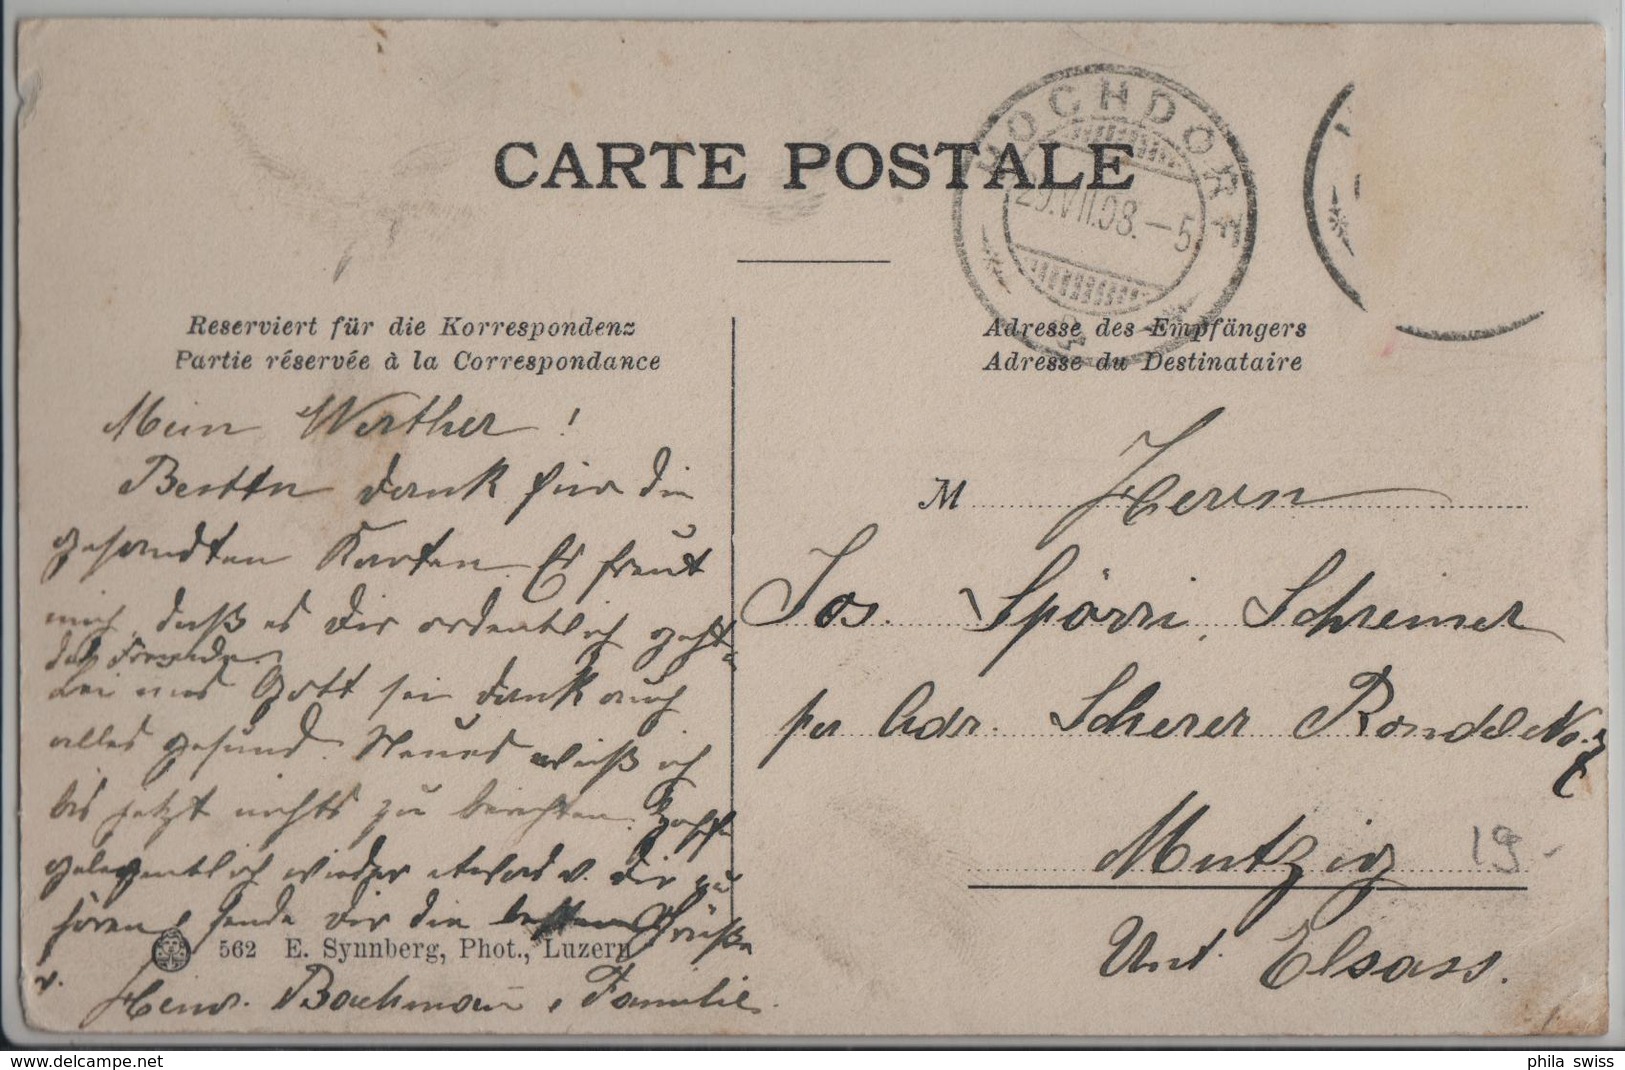 CARTE POSTALE
HOCHDORF
29.VII.08.-5
Reserviert für die Korrespondenz
Partie réservée à la Correspondance
Adresse des Empfängers
Adresse du Destinataire
Mein Werther!
Besten Dank für die
gesandten Karten. Es freut
mich, daß es Dir ordentlich geht
in der Fremde.
Bei uns Gott sei Dank auch
alles gesund. Neues weiß ich
bis jetzt nichts zu berichten. Hoffe
gelegentlich wieder etwas v. Dir zu
hören, sende Dir die besten Grüße
v.
Heinr. Bachmann, Familie.
562 E. Synnberg, Phot., Luzern
M Herrn
Jos. Spörri, Schreiner
per Adr. Scherer Rondel No. 7
Mutzig
19.-
Unt. Elsass.
www.delcampe.net
phila_swiss